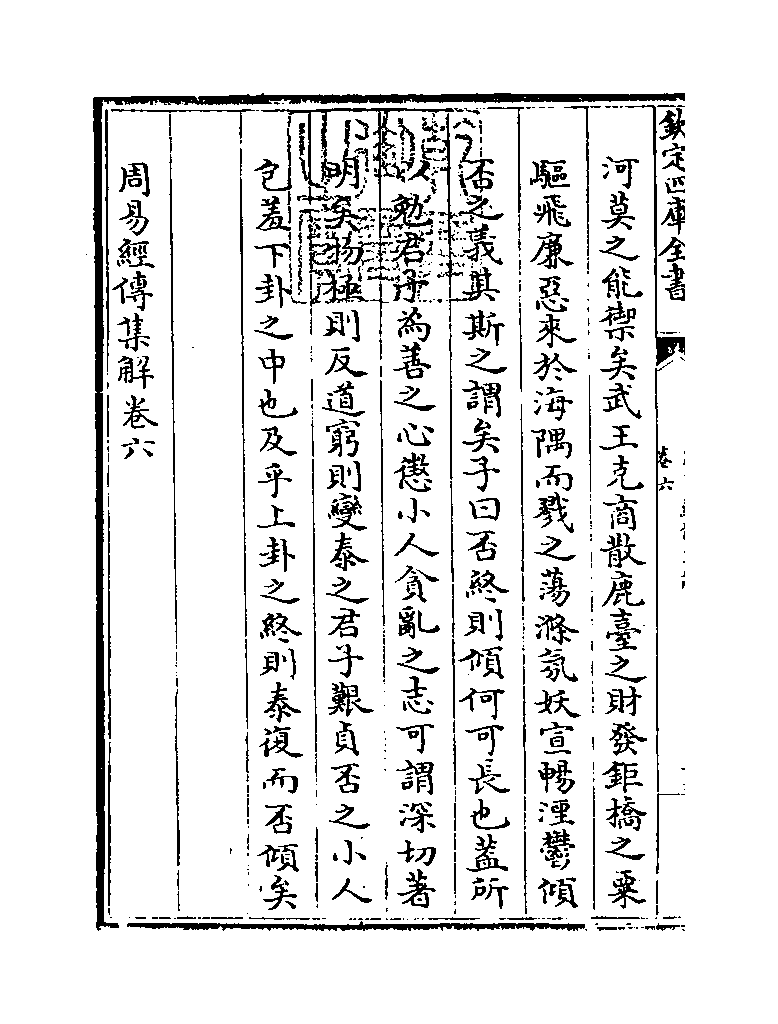 欽定四庫全書
卷六
河莫之能禦矣武王克商散鹿臺之財發鉅橋之粟
驅飛廉惡來於海隅而戮之蕩滌氛妖宣暢湮鬱傾
否之義其斯之謂矣子曰否終則傾何可長也蓋所
以勉君子為善之心懲小人貪亂之志可謂深切著
明矣物極則反道窮則變泰之君子艱貞否之小人
包羞下卦之中也及乎上卦之終則泰復而否傾矣
周易經傳集解卷六